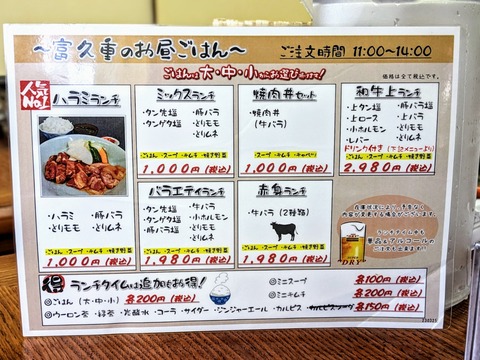 ～富久重のお昼ごはん～
ご注文時間 11:00～14:00
ごはんは大・中・小からお選び頂けます!
価格は全て税込です。
人気No.1
ハラミランチ
・ハラミ ・豚バラ
・とりモモ
・とりムネ
ごはん・スープ・キムチ・焼き野菜
1,000円(税込)
ミックスランチ
・タン先塩 ・豚バラ
・タンゲタ塩 ・とりモモ
・とりムネ
ごはん・スープ・キムチ・焼き野菜
1,000円(税込)
焼肉丼セット
・焼肉丼
(牛バラ)
ごはん・スープ・キムチ・キャベツ
1,000円(税込)
和牛上ランチ
・上タン塩 ・豚バラ
・上ロース ・上バラ
・小ホルモン ・とりモモ
・レバー ・とりムネ
ドリンク付き
ごはん・スープ・キムチ・焼き野菜
2,980円(税込)
バラエティランチ
・タン先塩 ・牛バラ
・タンゲタ塩 ・小ホルモン
・豚バラ ・とりモモ
・とりムネ
ごはん・スープ・キムチ・焼き野菜
1,980円(税込)
赤身ランチ
・牛バラ(2種類)
ごはん・スープ・キムチ・焼き野菜
1,980円(税込)
在庫状況により、予告なく
内容が変更する場合がございます。
ランチタイムも
単品&アルコールの
注文も出来ます!!
DRY
得 ランチタイムは追加もお得!
◎ごはん(大・中・小) 各200円(税込)
◎ミニスープ 各100円(税込)
◎ミニキムチ 各200円(税込)
◎ウーロン茶・緑茶・炭酸水・コーラ・サイダー・ジンジャーエール・カルピス・カルピスソーダ 各150円(税込)